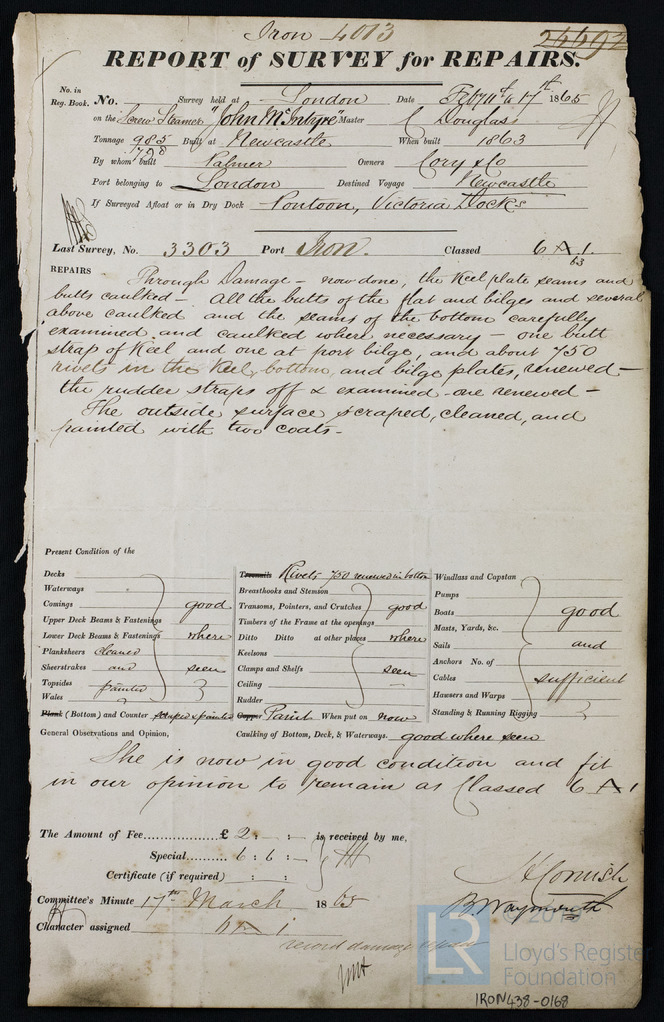 Iron 4013
REPORT of SURVEY for REPAIRS.
No. in Reg. Book. No. Survey held at London Date Feby 11th to 17th 1865
on the Screw Steamer "John McIntyre" Master C Douglass
Tonnage 985 Built at Newcastle When built 1863
By whom built Palmer Owners Cory & Co
Port belonging to London Destined Voyage Newcastle
If Surveyed Afloat or in Dry Dock Pontoon, Victoria Docks
Last Survey, No. 3303 Port Iron. Classed 6 A 1.
63
REPAIRS Through Damage - now done, the Keel plate seams and
butts caulked - All the butts of the flat and bilges and several
above caulked and the seams of the bottom carefully
examined and caulked where necessary - one butt
strap of Keel and one at port bilge, and about 750
rivets in the Keel, bottom, and bilge plates, renewed -
the rudder straps off & examined - one renewed -
The outside surface scraped, cleaned, and
painted with two coats -
Present Condition of the
Decks
Waterways
Comings good
Upper Deck Beams & Fastenings
Lower Deck Beams & Fastenings where
Planksheers cleaned
Sheerstrakes and seen
Topsides painted
Wales
Plank (Bottom) and Counter scraped & painted
Treenails Rivets 750 renewed in bottom
Breasthooks and Stemson
Transoms, Pointers, and Crutches good
Timbers of the Frame at the openings
Ditto Ditto at other places where
Keelsons
Clamps and Shelfs seen
Ceiling
Rudder
Copper Paint When put on now
Windlass and Capstan
Pumps
Boats good
Masts, Yards, &c.
Sails and
Anchors No. of
Cables sufficient
Hawsers and Warps
Standing & Running Rigging
General Observations and Opinion, Caulking of Bottom, Deck, & Waterways. good where seen
She is now in good condition and fit
in our opinion to remain as Classed 6 A 1
The Amount of Fee............... £ 2 : - : - is received by me,
Special............... 6 : 6 : -
Certificate (if required) : :
Committee's Minute 17th March 1865
Character assigned 6 A 1
record damage repairs
J H Cornish
B. Waymouth
LR
Lloyd's Register
Foundation
IRON438-0168